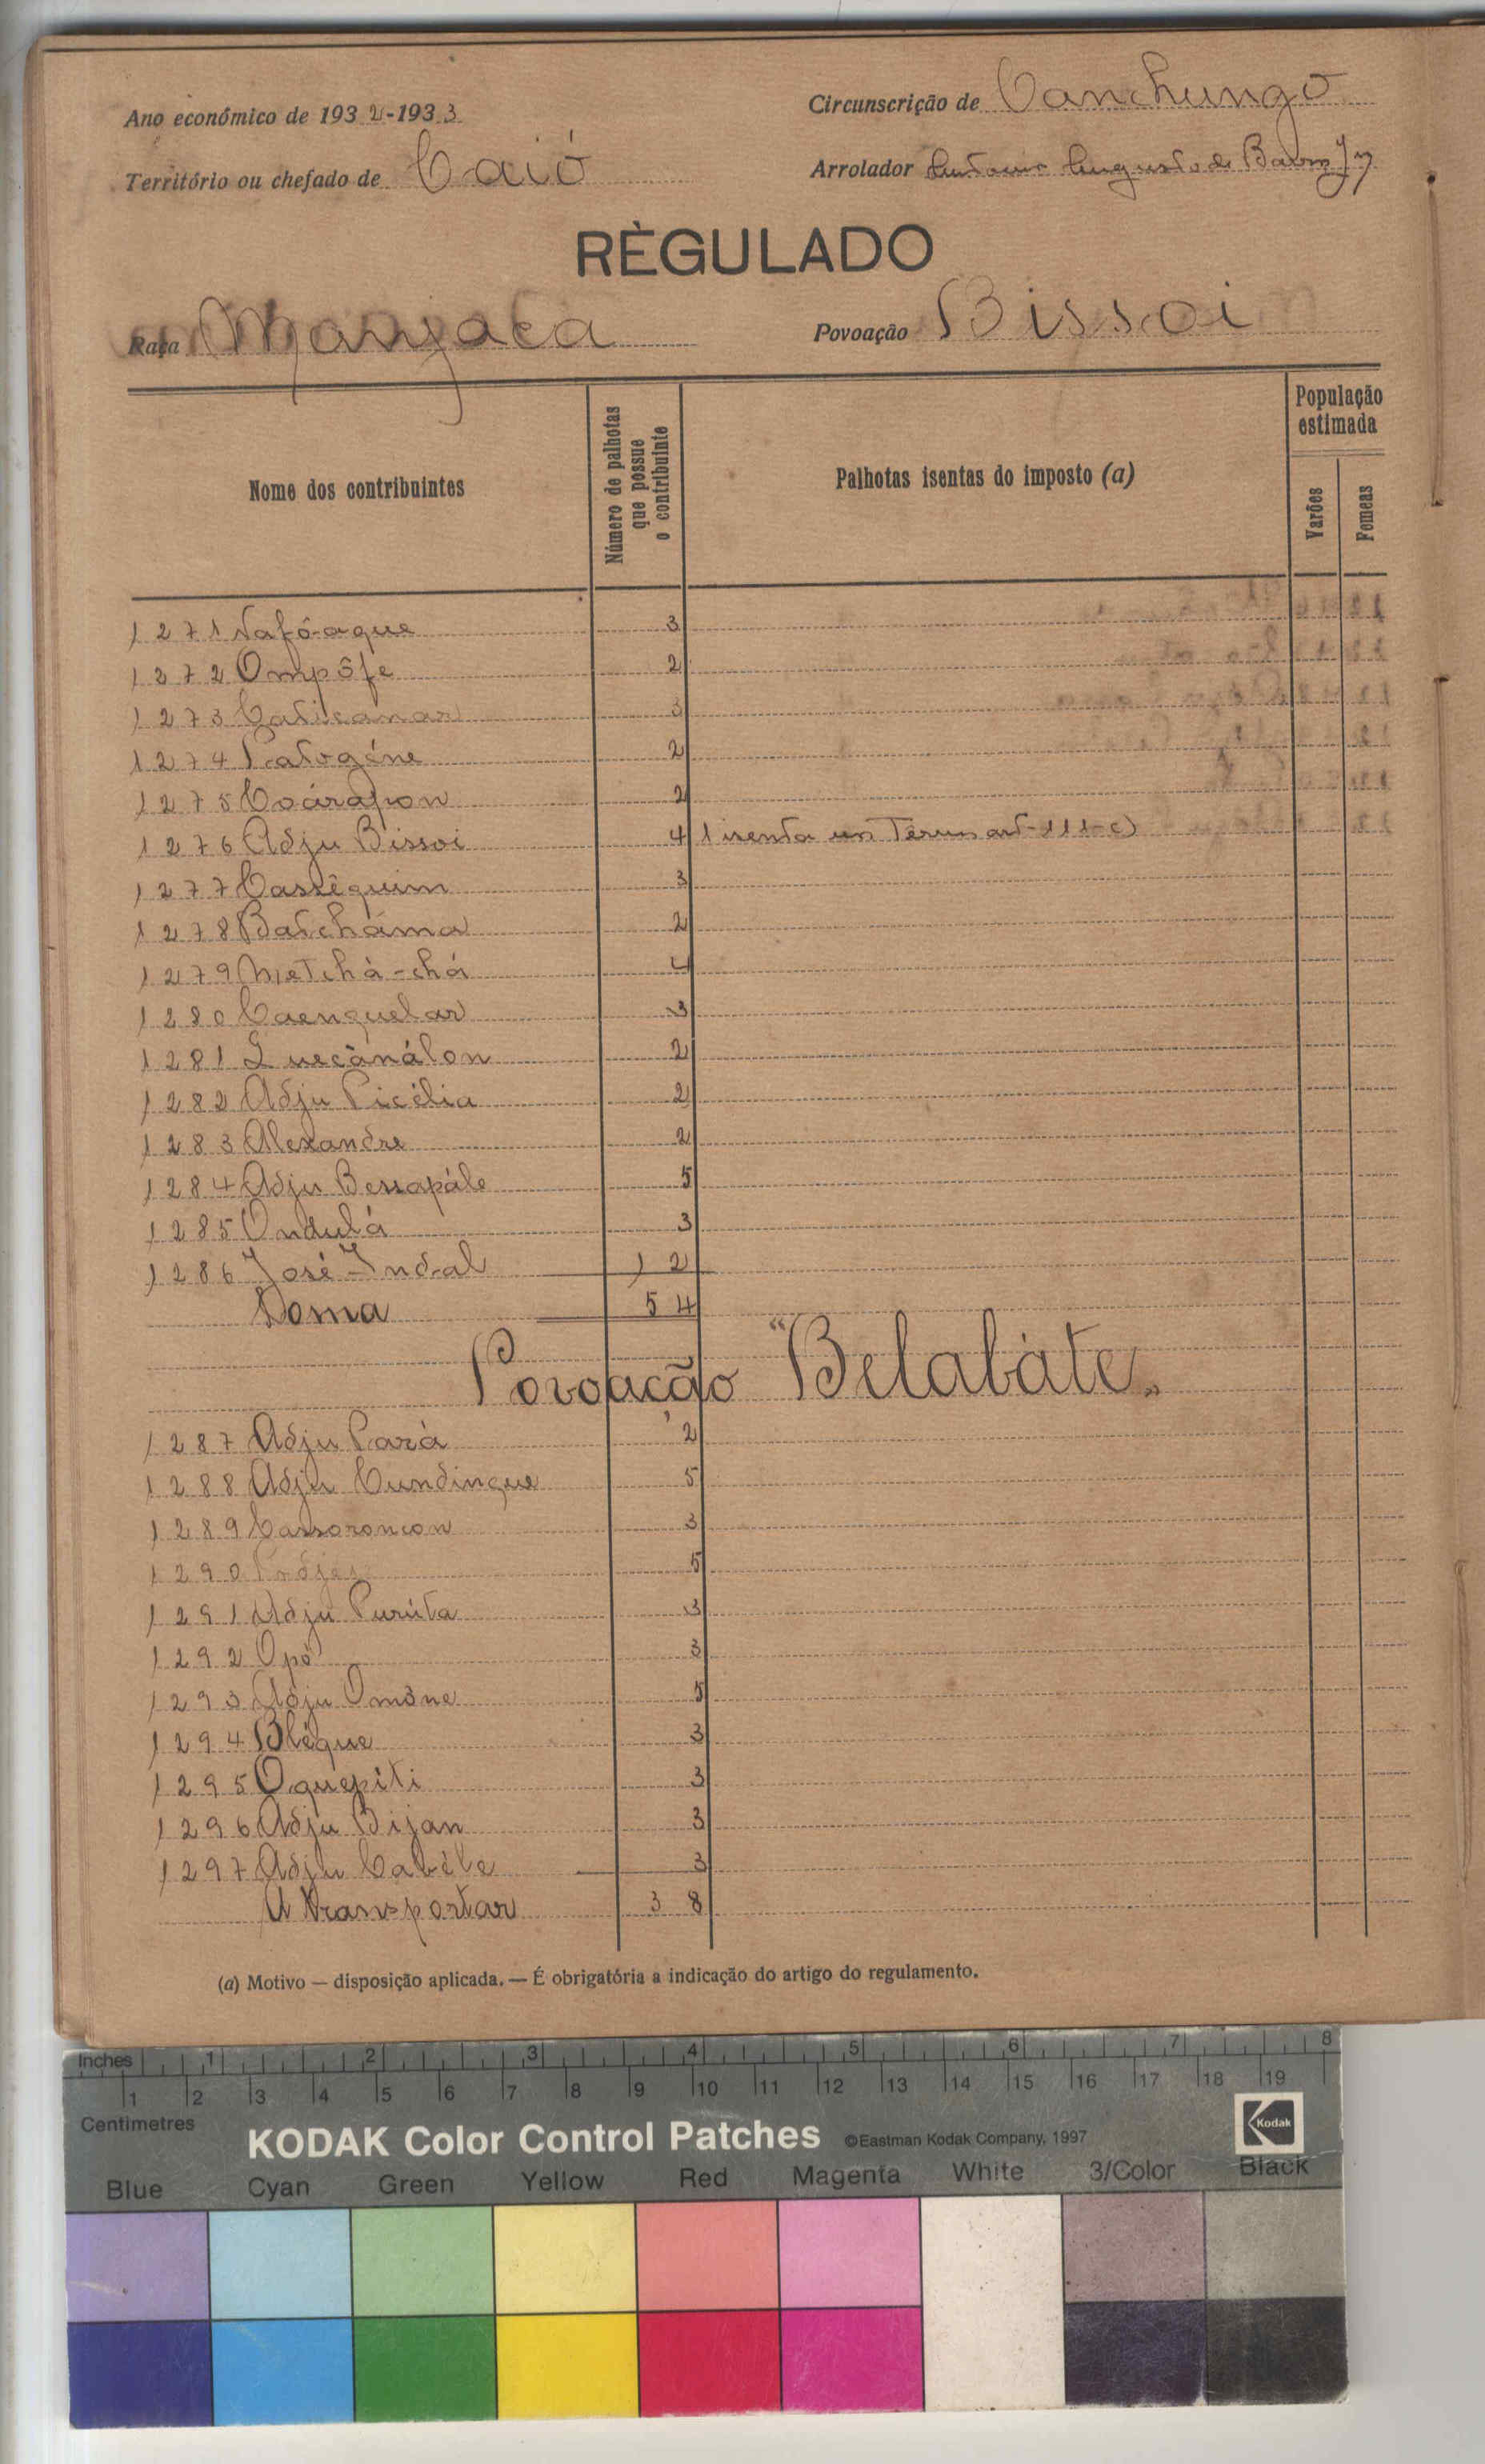 Ano económico de 1932-1933
Circunscrição de Canchungo
Território ou chefado de Caió
Arrolador Antonio Augusto de Barros Jr
RÈGULADO
Raça Manjaca
Povoação Bissoi
Nome dos contribuintes
Número de palhotas que possue o contribuinte
Palhotas isentas do imposto (a)
População estimada
Varões
Femeas
1271 Nafó-aque 3
1272 Ompôfe 2
1273 Caticanar 3
1274 Patogéne 2
1275 Cocárapon 2
1276 Adju Bissoi 4 1 isenta art-111-c)
1277 Cassêquim 3
1278 Batcháma 2
1279 Metchà-chá 4
1280 Caenquelar 3
1281 Luecánálon 2
1282 Adju Picélia 2
1283 Alexandre 2
1284 Adju Bessapále 5
1285 Ondulá 3
1286 José Indal 12
Soma 54
Povoação "Belabàte"
1287 Adju Pará 2
1288 Adju Cundingue 5
1289 Cassoroncon 3
1290 5
1291 Adju Purúta 3
1292 Opó 3
1293 Adju Omóne 5
1294 Bléque 3
1295 Oquepíti 3
1296 Adju Bijan 3
1297 Adju Cabéle 3
A transportar 38
(a) Motivo — disposição aplicada. — É obrigatória a indicação do artigo do regulamento.
Inches 1 2 3 4 5 6 7 8
1 2 3 4 5 6 7 8 9 10 11 12 13 14 15 16 17 18 19
Centimetres
KODAK Color Control Patches ©Eastman Kodak Company, 1997 Kodak
Blue Cyan Green Yellow Red Magenta White 3/Color Black